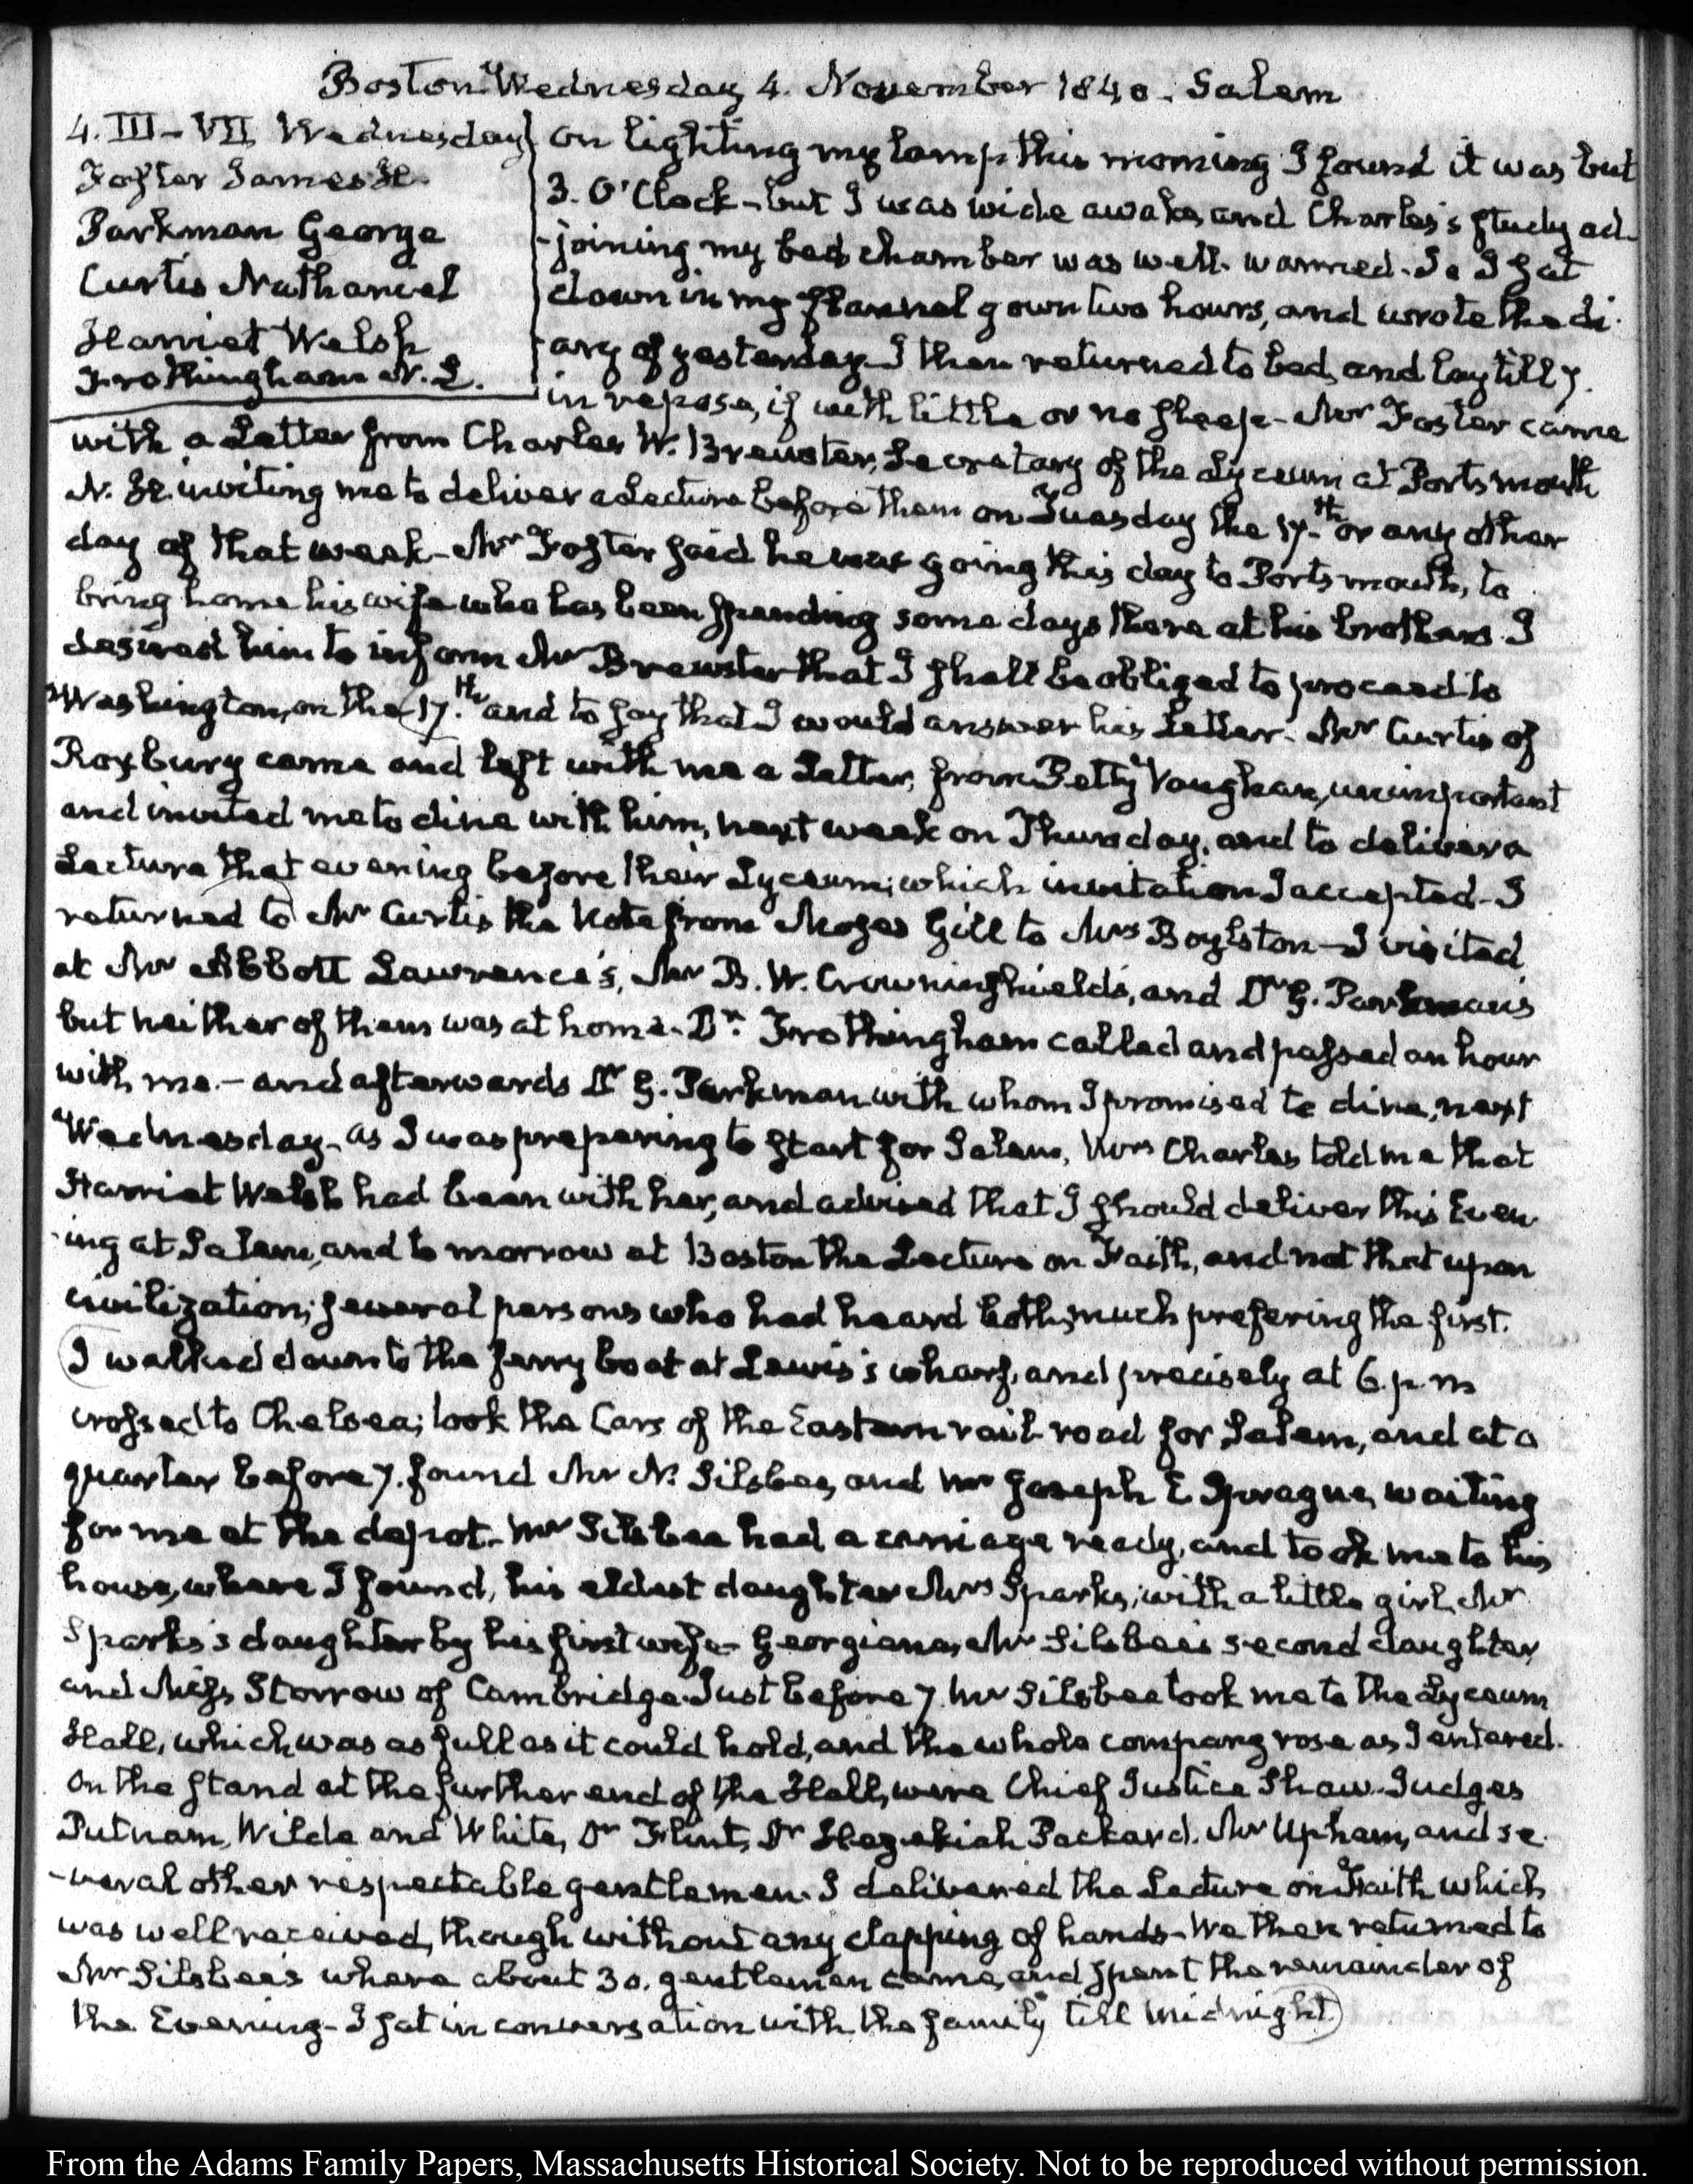 Boston Wednesday 4. November 1840. Salem
4. III–VII. Wednesday
Foster James H.
Parkman George
Curtis Nathaniel
Harriet Welsh
Frothingham N. L.
On lighting my lamp this morning I found it was but
3. O'Clock - but I was wide awake, and Charles's study ad-
-joining my bed chamber was well warmed. So I sat
down in my flannel gown two hours, and wrote the di-
-ary of yesterday. I then returned to bed, and lay till 7.
in repose, if with little or no sleep - Mr Foster came
with a Letter from Charles W. Brewster, Secretary of the Lyceum at Portsmouth
N. H. inviting me to deliver a Lecture before them on Tuesday the 17th or any other
day of that week - Mr Foster said he was going this day to Portsmouth, to
bring home his wife who has been spending some days there at his brothers. I
desired him to inform Mr Brewster that I shall be obliged to proceed to
Washington, on the 17.th and to say that I would answer his Letter - Mr Curtis of
Roxbury came and left with me a Letter, from Petty Vaughan, unimportant
and invited me to dine with him, next week on Thursday, and to deliver a
Lecture that evening before their Lyceum; which invitation I accepted - I
returned to Mr Curtis the Note from Moses Gill to Mrs Boylston - I visited
at Mr Abbott Lawrence's, Mr B. W. Crowninshield's, and Dr G. Parkman's
but neither of them was at home - Dr. Frothingham called and passed an hour
with me. - and afterwards Dr G. Parkman with whom I promised to dine, next
Wednesday - as I was preparing to start for Salem, Mrs Charles told me that
Harriet Welsh had been with her, and advised that I should deliver this Even
-ing at Salem, and to morrow at Boston the Lecture on Faith, and not that upon
civilization; several persons who had heard both, much prefering the first.
I walked down to the ferry boat at Lewis's wharf, and precisely at 6. p.m
crossed to Chelsea; took the Cars of the Eastern rail road for Salem, and at a
quarter before 7. found Mr N. Silsbee, and Mr Joseph E Sprague, waiting
for me at the depot - Mr Silsbee had a carriage ready, and took me to his
house, where I found, his eldest daughter Mrs Sparks, with a little girl, Mr
Sparks's daughter by his first wife - Georgiana, Mr Silsbee's second daughter,
and Miss Storrow of Cambridge. Just before 7. Mr Silsbee took me to the Lyceum
Hall, which was as full as it could hold, and the whole company rose as I entered.
On the stand at the further end of the Hall, were Chief Justice Shaw. Judges
Putnam, Wilde and White, Dr Flint, Dr Hezekiah Packard. Mr Upham, and se-
-veral other respectable gentlemen. I delivered the Lecture on Faith which
was well received, though without any clapping of hands - We then returned to
Mr Silsbee's where about 30. gentlemen came, and spent the remainder of
the Evening - I sat in conversation with the family till midnight.
From the Adams Family Papers, Massachusetts Historical Society. Not to be reproduced without permission.